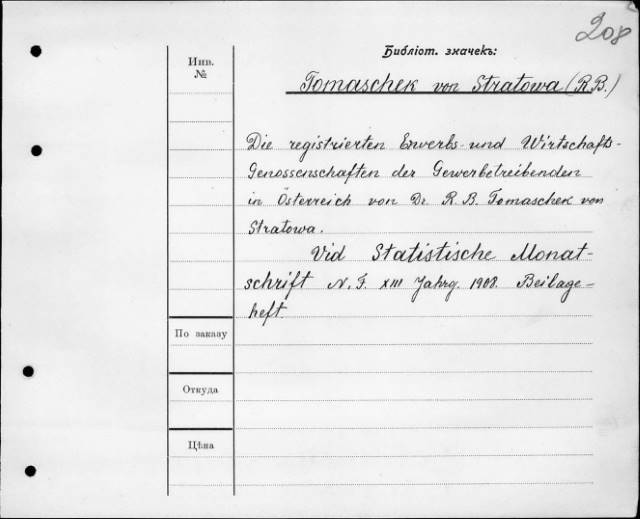 208
Библіот. значекъ:
Инв.
№
Tomaschek von Stratowa (R.B.)
Die registrierten Erwerbs- und Wirtschafts-
Genossenschaften der Gewerbetreibenden
in Österreich von Dr. R. B. Tomaschek von
Stratowa.
Vid Statistische Monat-
schrift N. F. XIII Jahrg. 1908. Beilage-
heft.
По заказу
Откуда
Цѣна